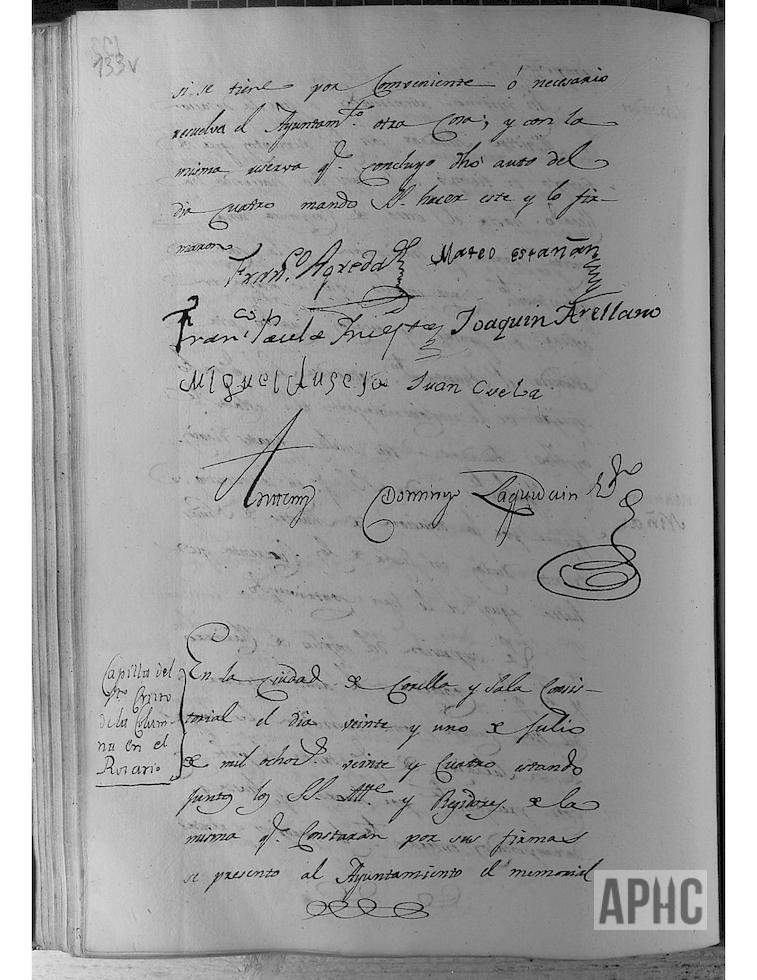 133v
si se tiene por Conveniente ó necesario
resuelva el Ayuntam.to otra Cosa; y con la
misma reserva q.e concluyo dho auto del
dia cuatro mando SS. hacer este y lo fir-
maron
Fran.co Agreda Mateo estañan
Fran.co Paul de
Joaquin Arellano
Miguel Juan Cuela
Ante mi Domingo Laquidain
Capilla del
Sto Cristo
de la Colum-
na en el
Rosario
En la Ciudad de Corella y Sala Consis-
torial el dia veinte y uno de Julio
de mil ochoc.s veinte y Cuatro estando
juntos los SS. Alc.e y Regidores de la
misma q.e Constaran por sus firmas
se presento al Ayuntamiento el memorial
APHC